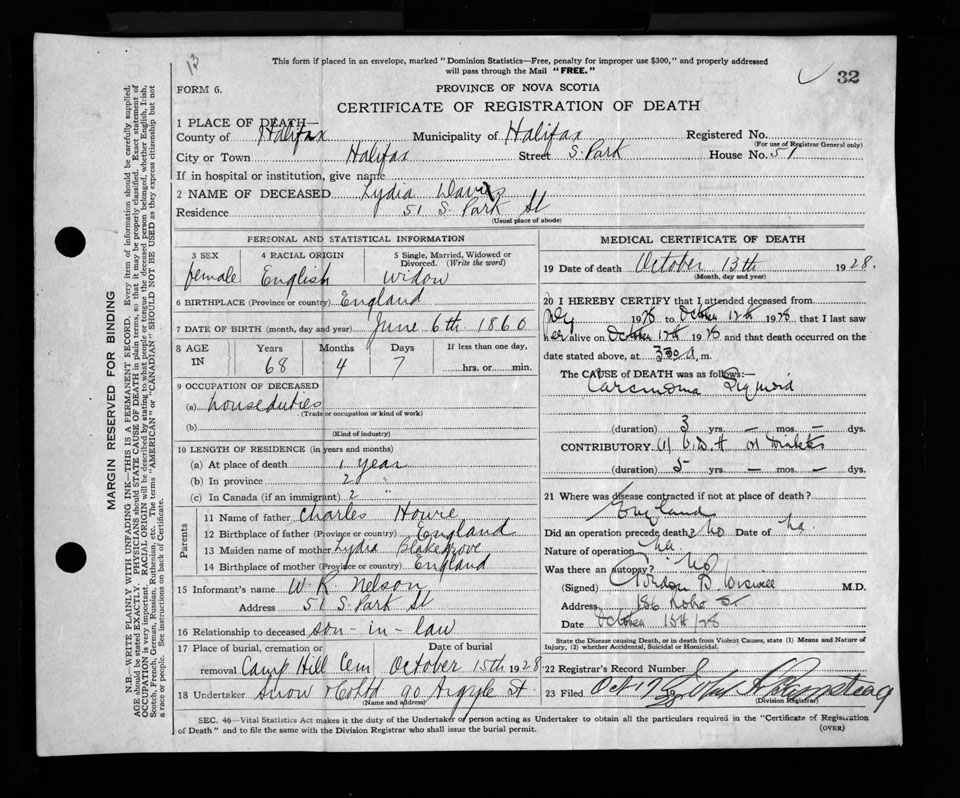 13
This form if placed in an envelope, marked "Dominion Statistics—Free, penalty for improper use $300," and properly addressed
will pass through the Mail "FREE."
32
FORM 6.
PROVINCE OF NOVA SCOTIA
CERTIFICATE OF REGISTRATION OF DEATH
1 PLACE OF DEATH—
County of Halifax Municipality of Halifax Registered No.
(For use of Registrar General only)
City or Town Halifax Street S. Park House No. 51
If in hospital or institution, give name
2 NAME OF DECEASED Lydia Davis
Residence 51 S. Park St
(Usual place of abode)
PERSONAL AND STATISTICAL INFORMATION
3 SEX 4 RACIAL ORIGIN 5 Single, Married, Widowed or Divorced. (Write the word)
female English widow
6 BIRTHPLACE (Province or country) England
7 DATE OF BIRTH (month, day and year) June 6th 1860
8 AGE IN Years Months Days If less than one day,
68 4 7 hrs. or min.
9 OCCUPATION OF DECEASED
(a) houseduties
(Trade or occupation or kind of work)
(b)
(Kind of industry)
10 LENGTH OF RESIDENCE (in years and months)
(a) At place of death 1 year
(b) In province 2 "
(c) In Canada (if an immigrant) 2 "
Parents
11 Name of father Charles Howie
12 Birthplace of father (Province or country) England
13 Maiden name of mother Lydia Blakegrove
14 Birthplace of mother (Province or country) England
15 Informant's name W R Nelson
Address 51 S. Park St
16 Relationship to deceased son-in-law
17 Place of burial, cremation or removal Date of burial
Camp Hill Cem October 15th 1928
18 Undertaker Snow & Co Ltd 90 Argyle St.
(Name and address)
MEDICAL CERTIFICATE OF DEATH
19 Date of death October 13th 1928.
(Month, day and year)
20 I HEREBY CERTIFY that I attended deceased from
July 1928 to October 12th 1928 that I last saw
her alive on October 12th 1928 and that death occurred on the
date stated above, at 3 30 A.m.
The CAUSE OF DEATH was as follows:—
Carcinoma Sigmoid
(duration) 3 yrs. — mos. — dys.
CONTRIBUTORY
Diabetes
(duration) 5 yrs. — mos. — dys.
21 Where was disease contracted if not at place of death?
England
Did an operation precede death? No Date of na.
Nature of operation na
Was there an autopsy? No
(Signed) Gordon B Wiswell M.D.
Address 186 St
Date October 15th/28
State the Disease causing Death, or in death from Violent Causes, state (1) Means and Nature of
Injury, (2) whether Accidental, Suicidal or Homicidal.
22 Registrar's Record Number
23 Filed Oct 17 28 John A Armstrong
(Division Registrar)
SEC. 46—Vital Statistics Act makes it the duty of the Undertaker or person acting as Undertaker to obtain all the particulars required in the "Certificate of Registration
of Death" and to file the same with the Division Registrar who shall issue the burial permit.
(OVER)
MARGIN RESERVED FOR BINDING
N.B.—WRITE PLAINLY WITH UNFADING INK—THIS IS A PERMANENT RECORD. Every item of information should be carefully supplied.
AGE should be stated EXACTLY. PHYSICIANS should STATE CAUSE OF DEATH in plain terms, so that it may be properly classified. Exact statement of
OCCUPATION is very important. RACIAL ORIGIN will be described by stating to what people or tongue the deceased person belonged, whether English, Irish,
Scotch, French, German, Russian, Ruthenian, etc. The terms "AMERICAN" or "CANADIAN" SHOULD NOT BE USED as they express citizenship but not
a race or people. See instructions on back of Certificate.